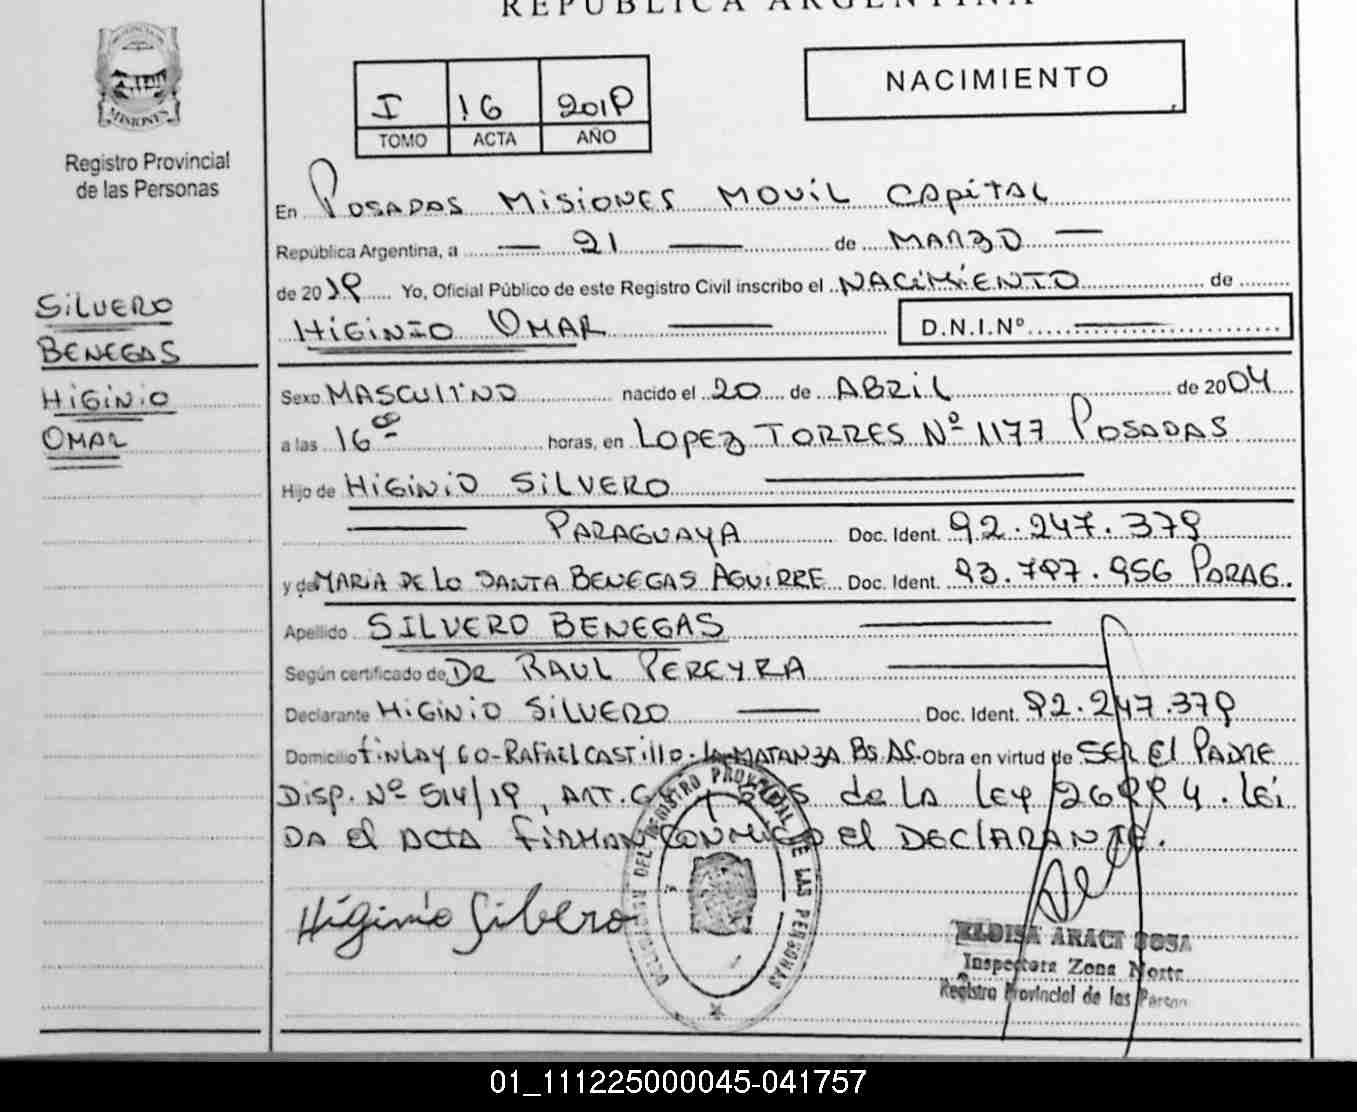 REPUBLICA ARGENTINA
MISIONES
Registro Provincial
de las Personas
I 16 2019
TOMO ACTA AÑO
NACIMIENTO
En POSADAS MISIONES MOVIL CAPITAL
República Argentina, a 21 de MARZO
de 2019 Yo, Oficial Público de este Registro Civil inscribo el NACIMIENTO de
HIGINIO OMAR D.N.I.Nº
SILVERO
BENEGAS
HIGINIO
OMAR
Sexo MASCULINO nacido el 20 de ABRIL de 2004
a las 16 horas, en LOPEZ TORRES Nº 1177 POSADAS
Hijo de HIGINIO SILVERO
PARAGUAYA Doc. Ident. 92.247.379
y de MARIA DE LA SANTA BENEGAS AGUIRRE Doc. Ident. 93.797.956 PARAG.
Apellido SILVERO BENEGAS
Según certificado de DR RAUL PEREYRA
Declarante HIGINIO SILVERO Doc. Ident. 92.247.379
Domicilio FINLAY 60-RAFAEL CASTILLO-LA MATANZA BS AS. Obra en virtud de SER El PADRE
DISP. Nº 514/19, ART. de la Ley 26994. LEI
DA el ACTA FIRMAN CONMIGO el DECLARANTE.
Higinio Silvero
DEL REGISTRO PROVINCIAL DE LAS PERSONAS
ELOISA ARACI SOSA
Inspectora Zona Norte
Registro Provincial de las Person
01_111225000045-041757